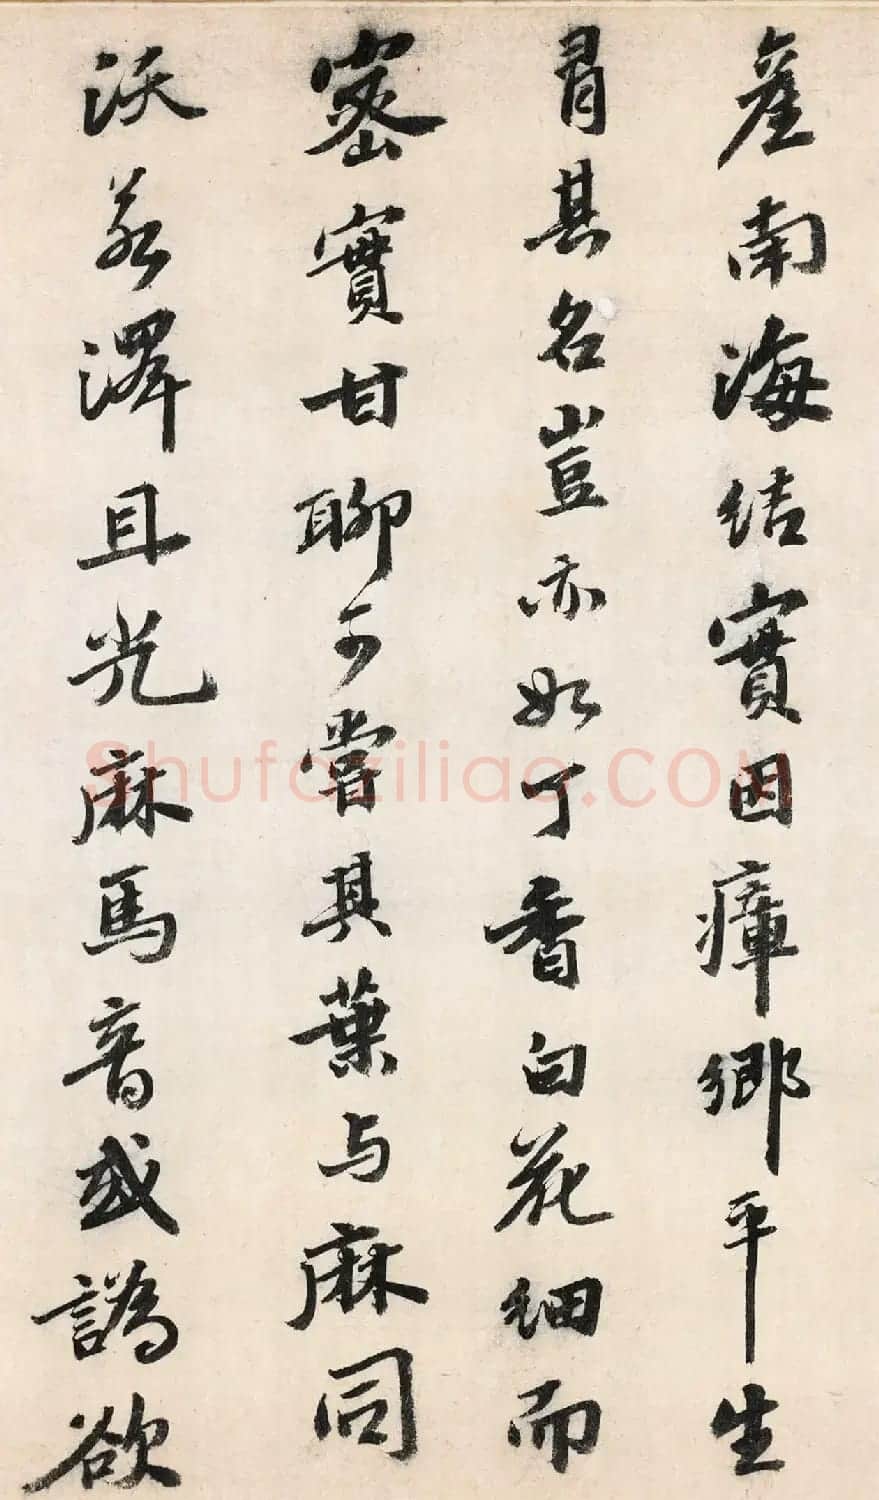 產南海結實因瘴鄉平生
冐其名豈亦如丁香白花細而
密實甘聊可嘗其葉与麻同
沃若澤且光麻馬音或譌欲
Shufaziliao.COM